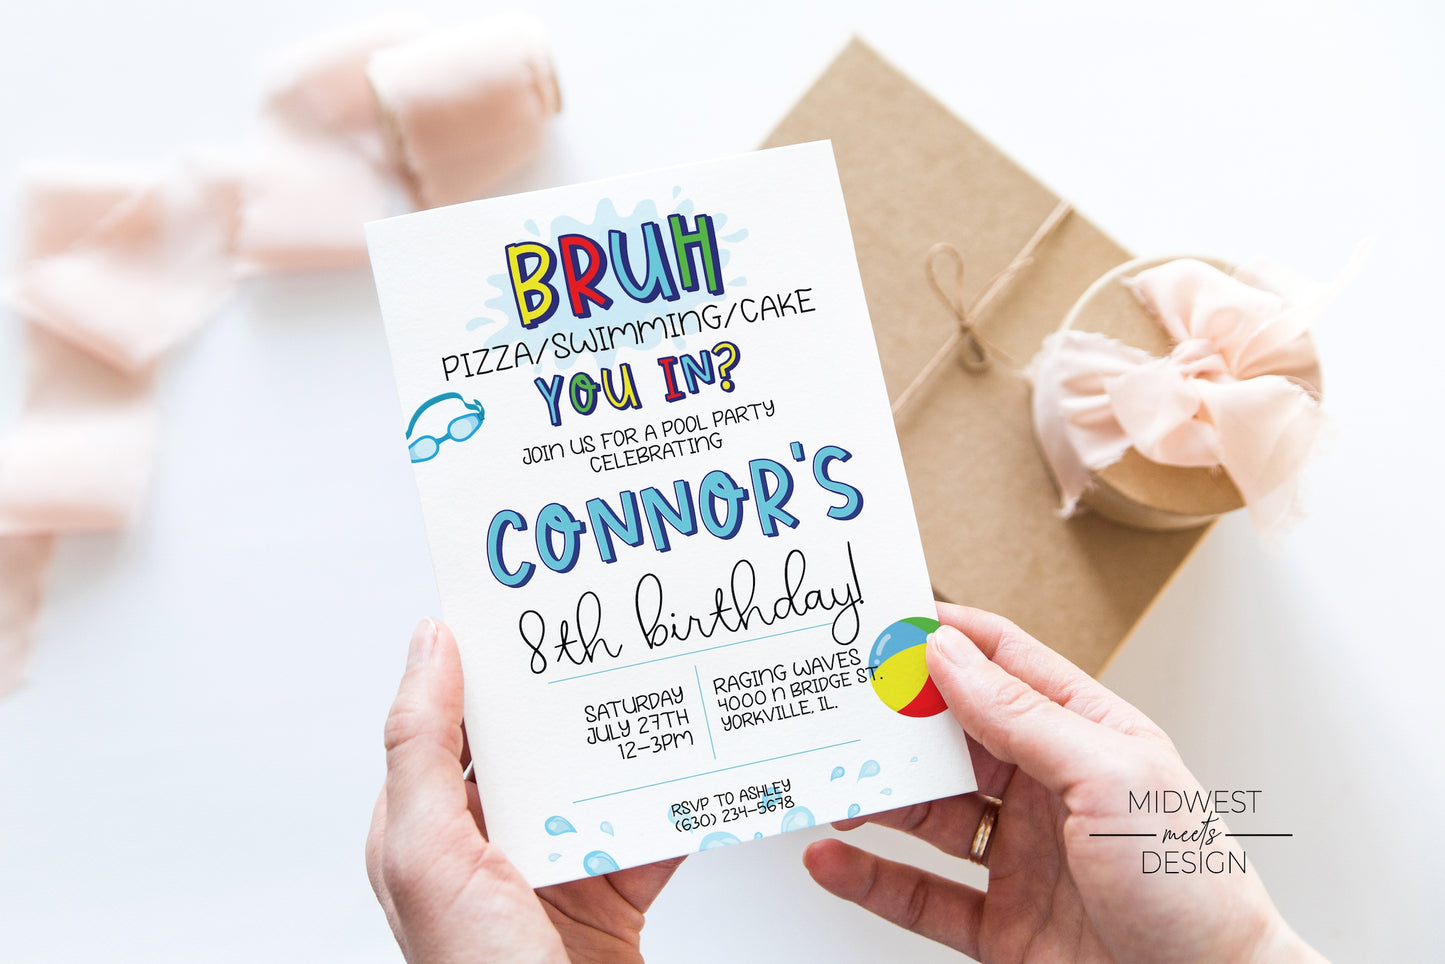 BRUH
PIZZA/SWIMMING/CAKE
YOU IN?
JOIN US FOR A POOL PARTY
CELEBRATING
CONNOR'S
8th birthday!
SATURDAY
JULY 27TH
12-3PM
RAGING WAVES
4000 N BRIDGE ST.
YORKVILLE, IL.
RSVP TO ASHLEY
(630) 234-5678
MIDWEST
meets
DESIGN